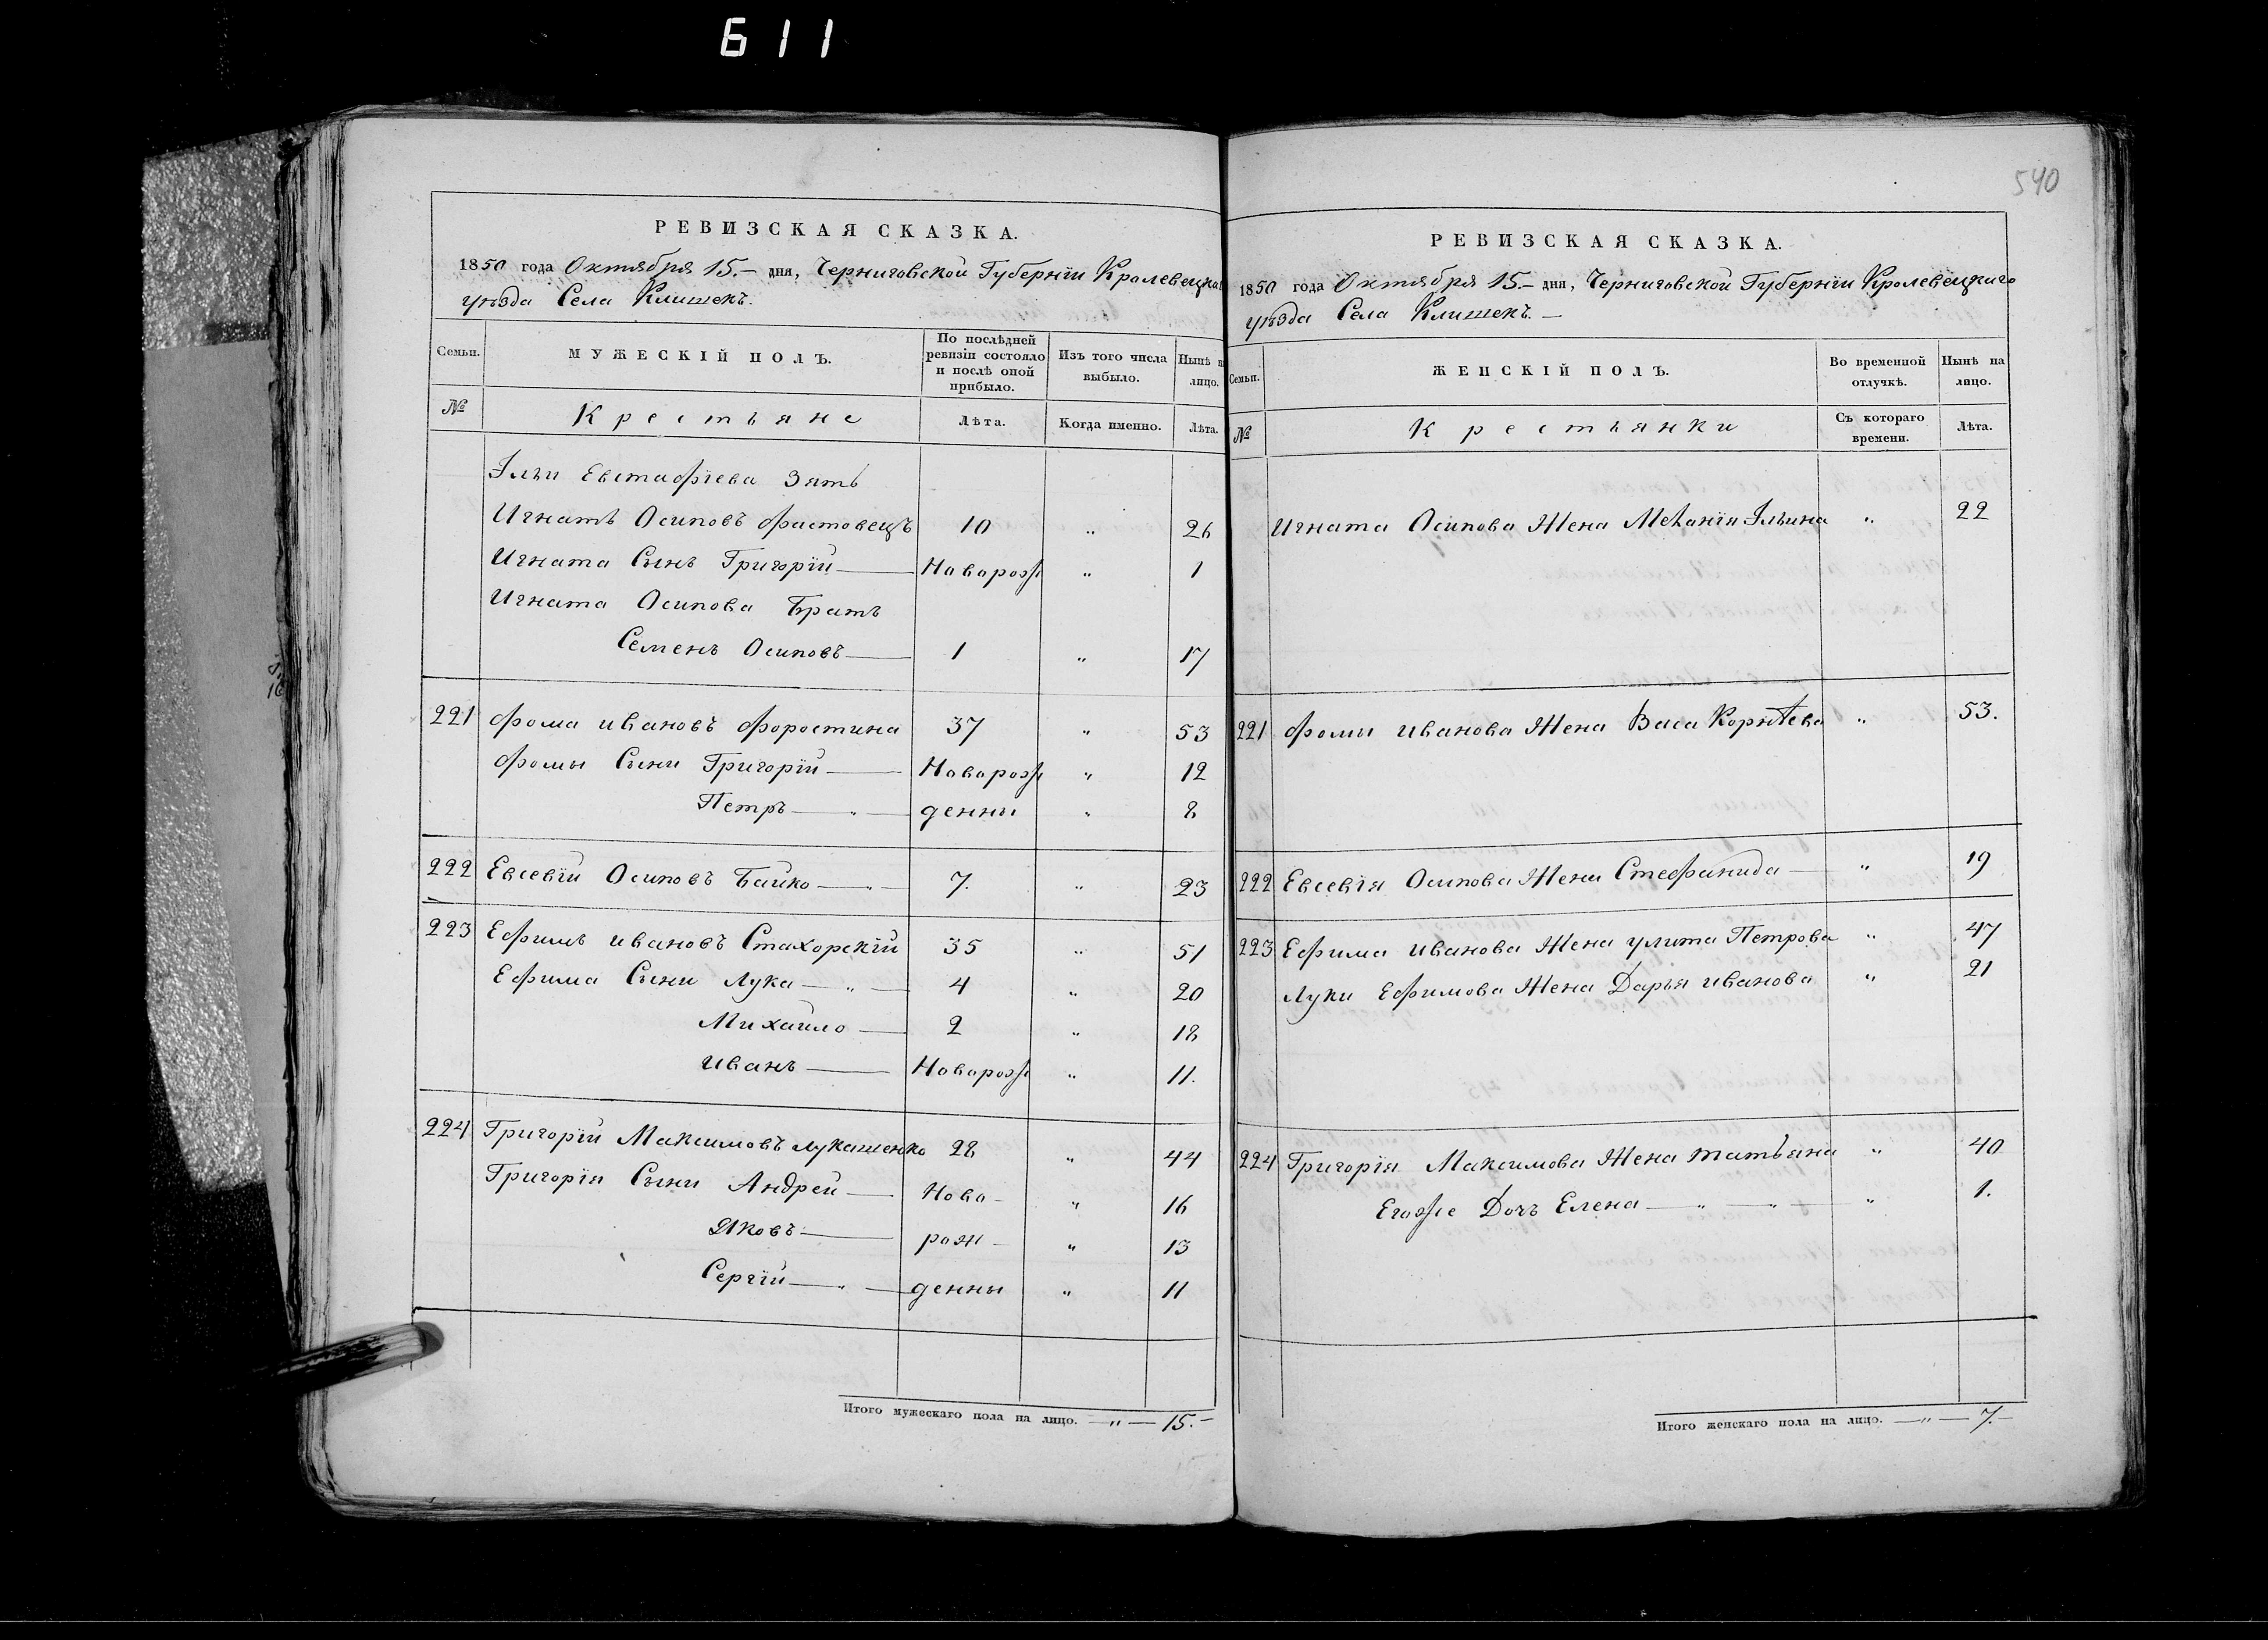 611
540
РЕВИЗСКАЯ СКАЗКА.
1850 года Октября 15.– дня, Черниговской Губерніи Кролевецка
уѣзда Села Клишекъ.
Семьи. МУЖЕСКІЙ ПОЛЪ. По послѣдней ревизіи состояло и послѣ оной прибыло. Изъ того числа выбыло. Нынѣ н лицо.
№ Крестьяне Лѣта. Когда именно. Лѣта.
Ильи Евстафіева Зять
Игнатъ Осиповъ Фастовецъ 10 " 26
Игната Сынъ Григорій — Новорож " 1
Игната Осипова Братъ
Семенъ Осиповъ — 1 " 17
221 Фома Ивановъ Форостина 37 " 53
Фомы Сыни Григорій — Новорож " 12
Петръ — " — денны " 8
222 Евсевій Осиповъ Байко — " — 7. " 23
223 Ефимъ Ивановъ Стахорскій 35 " 51
Ефима Сыни Лука — " — 4 " 20
Михайло — 2 " 18
Иванъ — Новорож " 11.
224 Григорій Максимовъ Лукашенко 28 " 44
Григорія Сыни Андрей — Ново– " 16
Яковъ — рож– " 13
Сергій — " — денны " 11
Итого мужескаго пола на лицо. — " — 15.–
РЕВИЗСКАЯ СКАЗКА.
1850 года Октября 15.– дня, Черниговской Губерніи Кролевецкаго
уѣзда Села Клишекъ. –
Семьи. ЖЕНСКІЙ ПОЛЪ. Во временной отлучкѣ. Нынѣ на лицо.
№ Крестьянки Съ котораго времени. Лѣта.
Игната Осипова Жена Меланія Ильина " 22
221 Фомы Иванова Жена Васа Корнѣева " 53.
222 Евсевія Осипова Жена Стефанида — " 19
223 Ефима Иванова Жена Улита Петрова " 47
Луки Ефимова Жена Дарья Иванова " 21
224 Григорія Максимова Жена Татьяна " 40
Егоже Дочъ Елена — " — " — " 1.
Итого женскаго пола на лицо. — " — 7.–